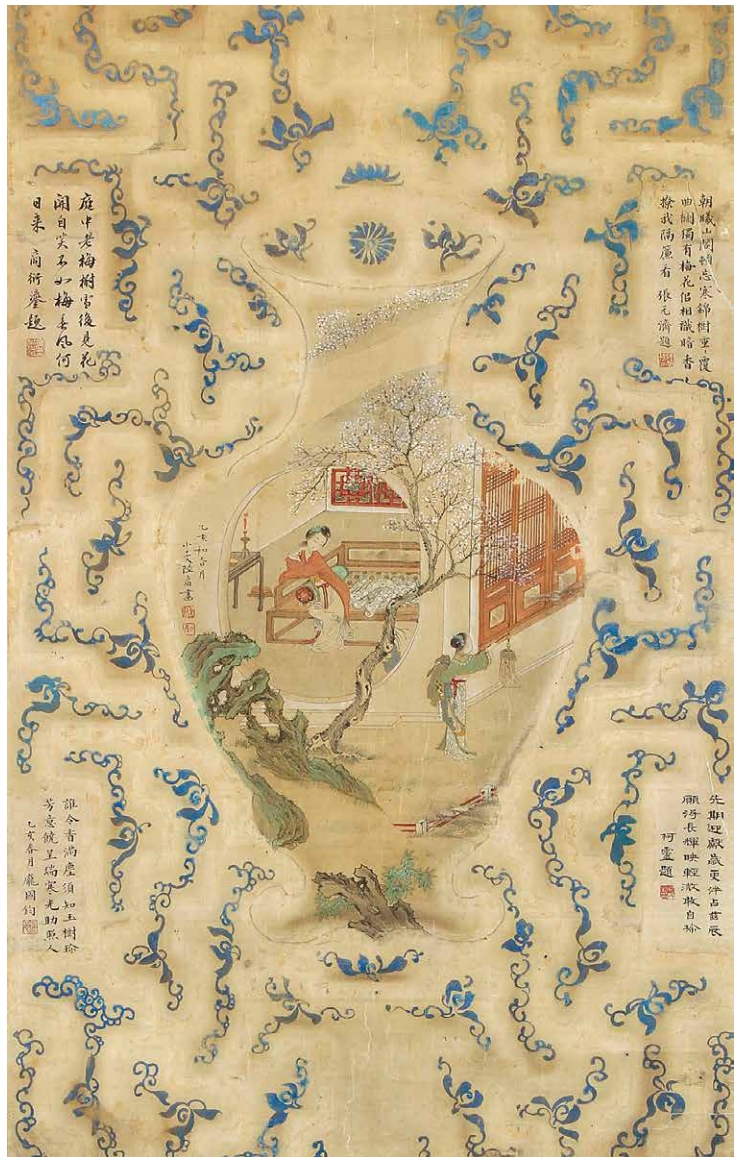 朝曦山閣頓忘寒錦樹重〻覆
曲闌獨有梅花佀相識暗香
撩我隔簾看 張元濟題
庭中老梅樹雪後見花
開自笑不如梅春風何
日来 商衍鎏題
乙亥初春月
小 陸 畫
先期迎獻歲更伴占茲辰
願得長輝映輕微敢自珍
柯靈題
誰令香滿塵須知玉樹珍
芳意饒呈瑞寒光助照人
乙亥春月龐國鈞